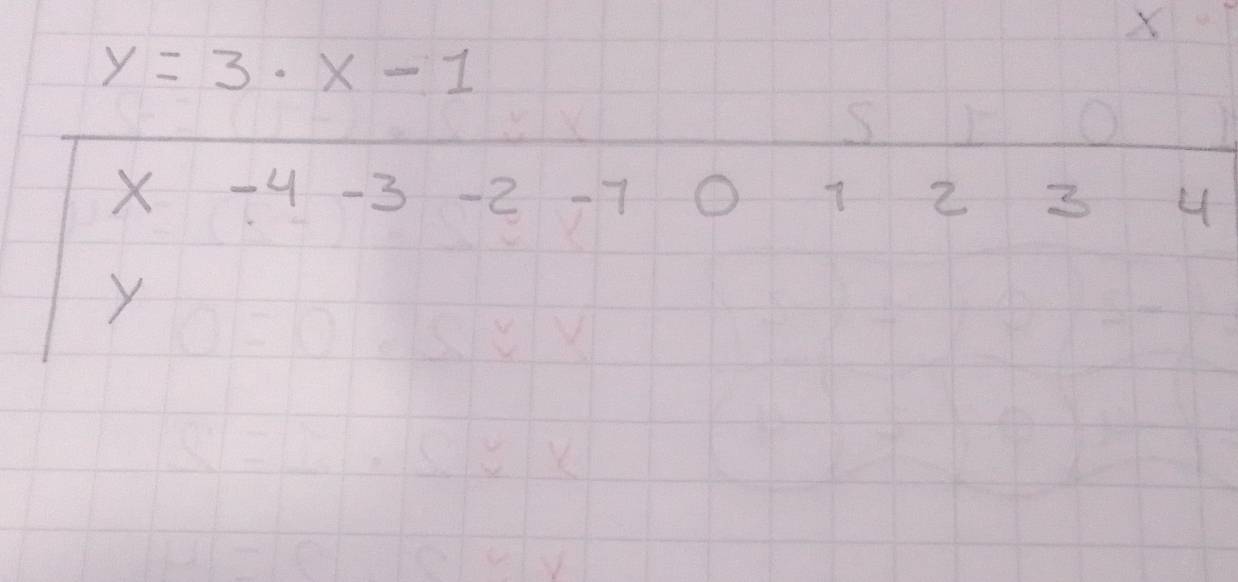 x
y = 3 · x - 1
x -4 -3 -2 -1 0 1 2 3 4
y